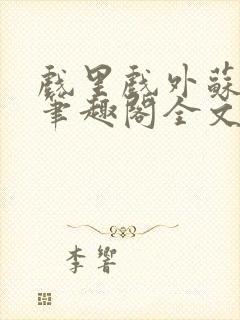 戲里戲外蘇
筆趣閣全文
李響